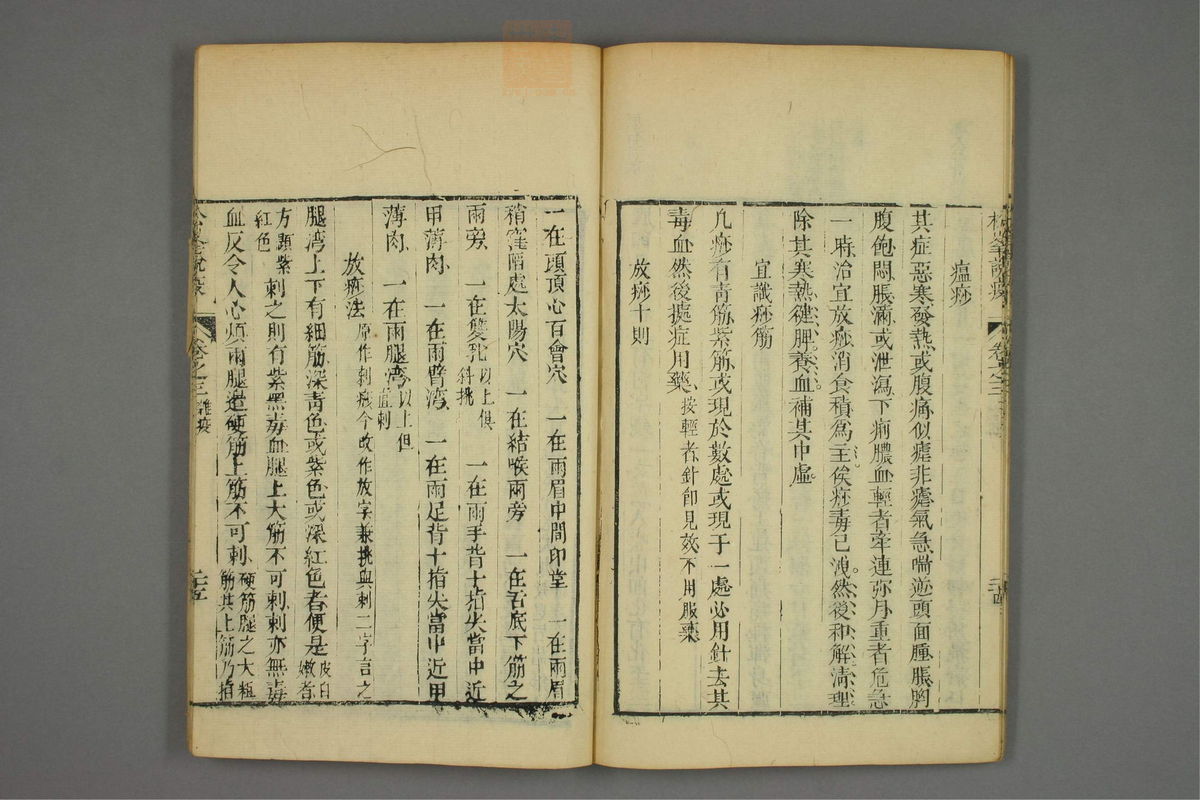 瘟痧
其症惡寒發熱或腹痛似瘧非瘧氣急喘逆頭面腫脹胸
腹飽悶脹滿或泄瀉下痢膿血輕者牽連弥月重者危急
一時治宜放痧消食積為主俟痧毒已洩然後和解清理
除其寒熱健脾養血補其中虛
宜識痧筋
凡痧有青筋紫筋或現於數處或現于一處必用針去其
毒血然後據症用藥按輕者針卽見效不用服藥
放痧十則
一在頭頂心百會穴 一在兩眉中間印堂 一在兩眉
稍窪陷處太陽穴 一在結喉兩旁 一在舌底下筋之
兩旁 一在雙乳以上俱斜挑 一在兩手背十指尖當中近
甲薄肉 一在兩臂湾 一在兩足背十指尖當中近甲
薄肉 一在兩腿湾以上但直刺
放痧法原作刺痧今改作放字兼挑與刺二字言之
腿湾上下有細筋深青色或紫色或深紅色者便是皮白嫩者
方顯紫紅色刺之則有紫黑毒血腿上大筋不可刺刺亦無毒
血反令人心煩兩腿邊硬筋上筋不可刺硬筋腿之大粗筋其上筋乃指
松峯說疫
卷之三雜疫
二十五